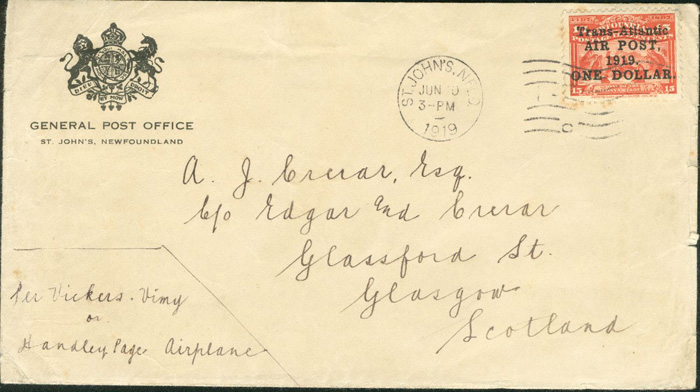 GENERAL POST OFFICE
ST. JOHN'S, NEWFOUNDLAND
ST. JOHN'S, NFLD
JUN 10
3-PM
1919
Trans-Atlantic
AIR POST,
1919.
ONE DOLLAR.
15 15
A. J. Crerar, Esq.
C/o Edgar and Crerar
Glassford St.
Glasgow
Scotland
Per Vickers-Vimy
or
Handley Page Airplane